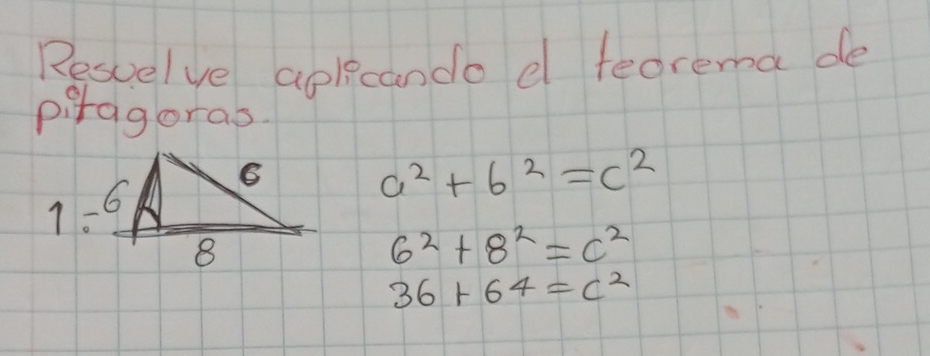 Resuelve aplicando el teorema de
pitagoras.
1.- 6 6 a² + b² = c²
8 6² + 8² = c²
36 + 64 = c²